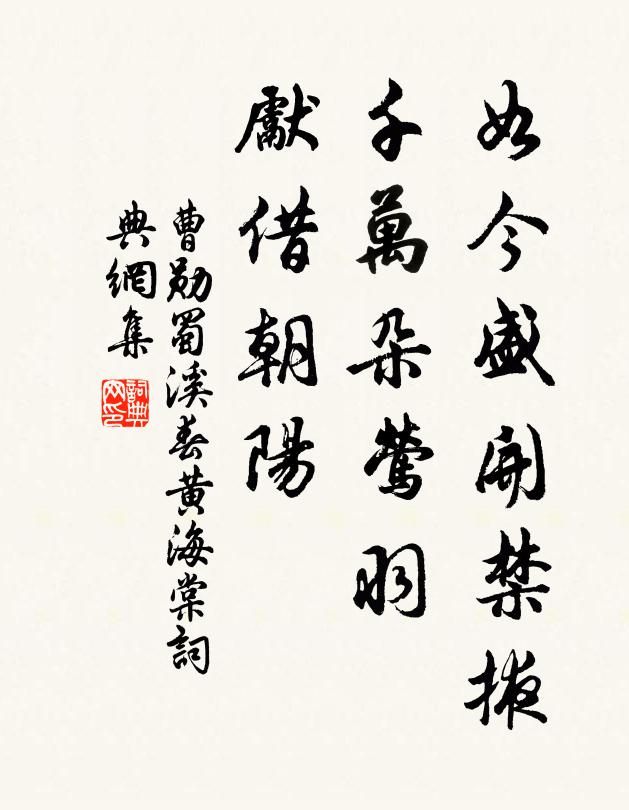 如今盛開禁掖
千萬朵鶯羽
獻借朝陽
曹勛蜀溪春黃海棠詞
典網集
詞典網印